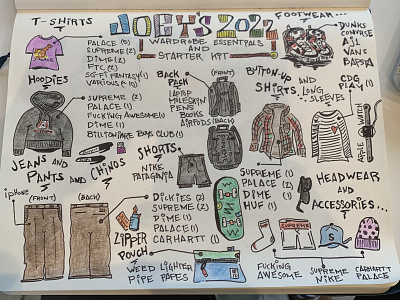 JOEY'S 2022
WARDROBE ESSENTIALS
AND
STARTER KIT
T-SHIRTS
PALACE (5)
SUPREME (2)
DIME (2)
ETC (2)
SCI-FI FANTASY (1)
VARIOUS (10)
FOOTWEAR...
DUNKS
CONVERSE
AJ1
VANS
BAPSTA
CDG
PLAY (1)
HOODIES
SUPREME (2)
PALACE (1)
FUCKING AWESOME (1)
DIME (1)
BILLIONAIRE BOYS CLUB (1)
BACK
PACK
(FRONT)
LAPTOP
MOLESKIN
PENS
BOOKS
AIRPODS
(BACK)
BUTTON-UP
SHIRTS
AND
LONG
SLEEVES
APPLE WATCH
JEANS AND
PANTS AND
CHINOS
SHORTS
NIKE
PATAGONIA
SUPREME (1)
PALACE (2)
DIME (1)
HUF (1)
HEADWEAR
AND
ACCESSORIES...
iPHONE
(FRONT)
(BACK)
DICKIES (2)
SUPREME (2)
DIME (1)
PALACE (1)
CARHARTT (1)
ZIPPER
POUCH
WEED LIGHTER
PIPE PAPES
SUPREME
S
FUCKING
AWESOME
SUPREME
NIKE
CARHARTT
PALACE